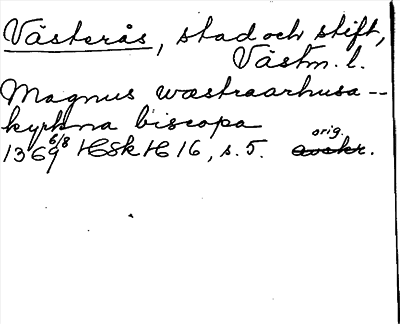 Västerås, stad och stift,
Västm. l.
Magnus wæstraarhusa --
kyrkna biscopa
1369 6/8 HSk H 16, s. 5. avskr. orig.